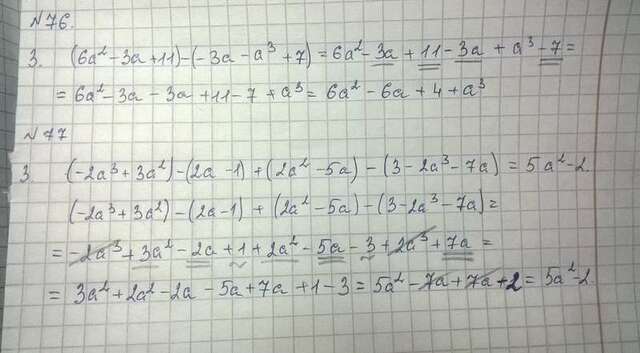 №76.
3. (6a²-3a+11)-(-3a-a³+7)=6a²-3a+11-3a+a³-7=
=6a²-3a-3a+11-7+a³=6a²-6a+4+a³
№77
3. (-2a³+3a²)-(2a-1)+(2a²-5a)-(3-2a³-7a)=5a²-2.
(-2a³+3a²)-(2a-1)+(2a²-5a)-(3-2a³-7a)=
=-2a³+3a²-2a+1+2a²-5a-3+2a³+7a=
=3a²+2a²-2a-5a+7a+1-3=5a²-7a+7a+2=5a²-2.